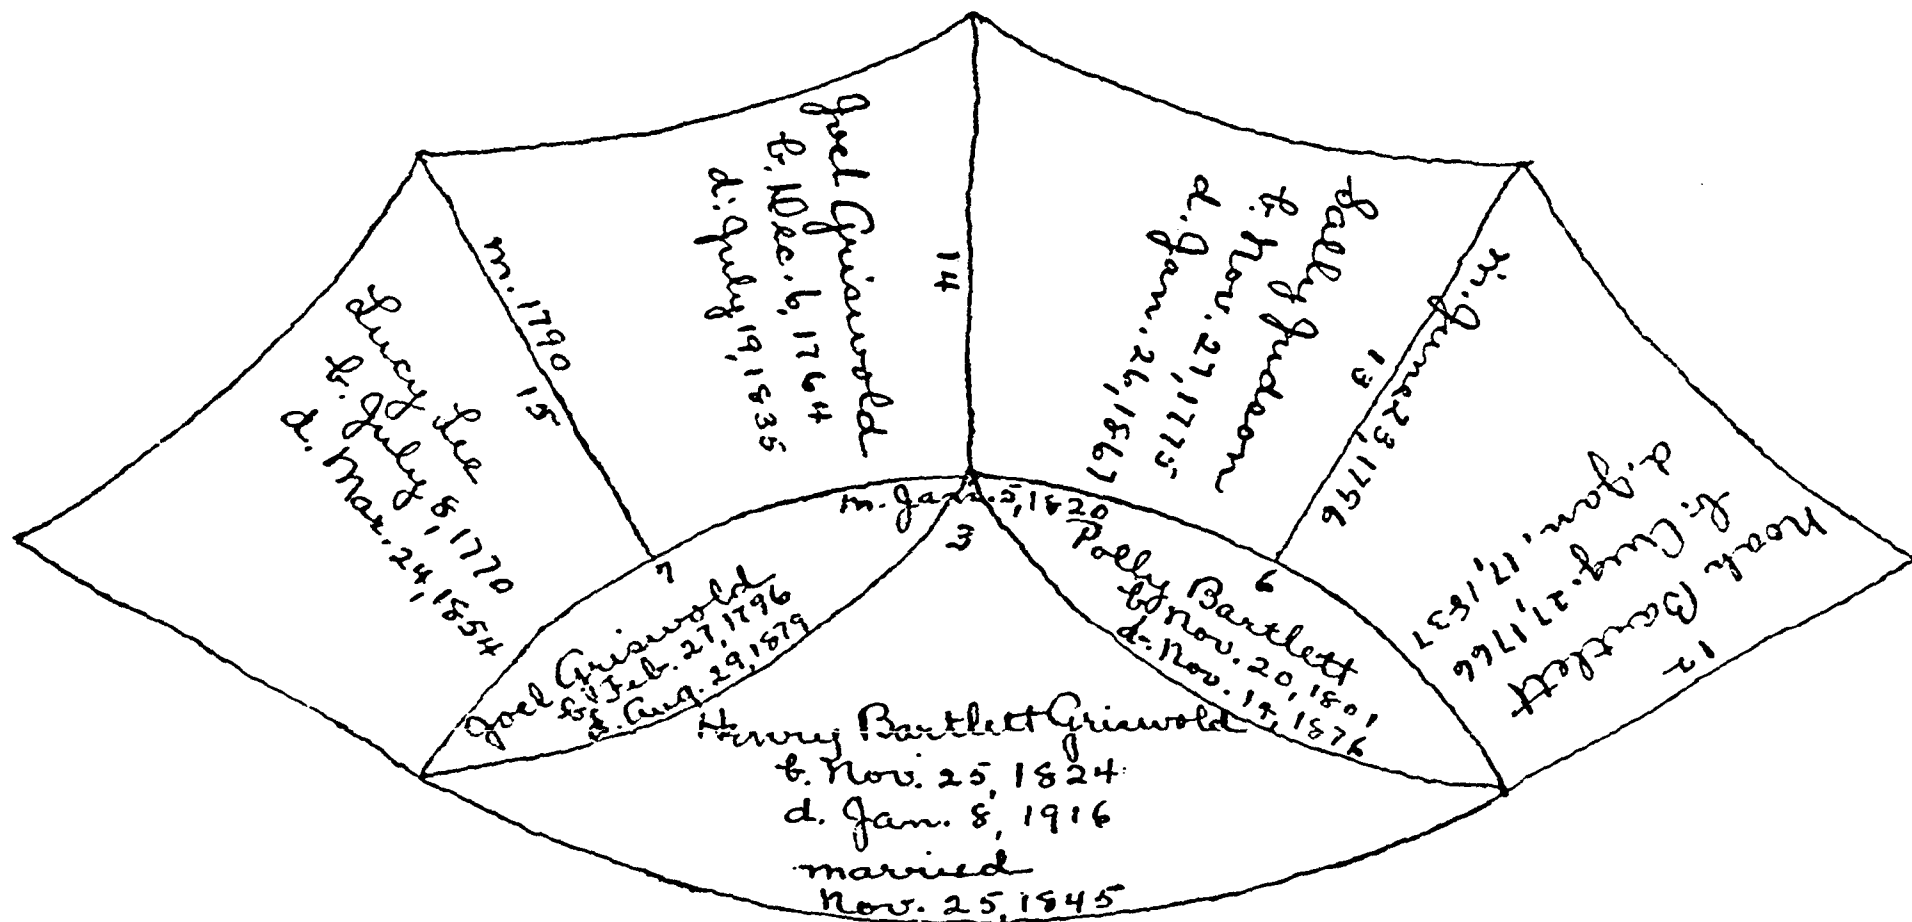 Lucy Lee
b. July 8, 1770
d. Mar. 24, 1854
m. 1790
15
Joel Griswold
b. Dec. 6, 1764
d. July 19, 1835
14
Sally Judson
b. Nov. 27, 1775
d. Jan. 26, 1867
m. June 23, 1796
13
Noah Bartlett
b. Aug. 27, 1766
d. Jan. 17, 1837
12
m. Jan. 5, 1820
3
7
Joel Griswold
b. Feb. 27, 1796
d. Aug. 29, 1879
6
Polly Bartlett
b. Nov. 20, 1801
d. Nov. 14, 1876
Henry Bartlett Griswold
b. Nov. 25, 1824
d. Jan. 8, 1916
married
Nov. 25, 1845